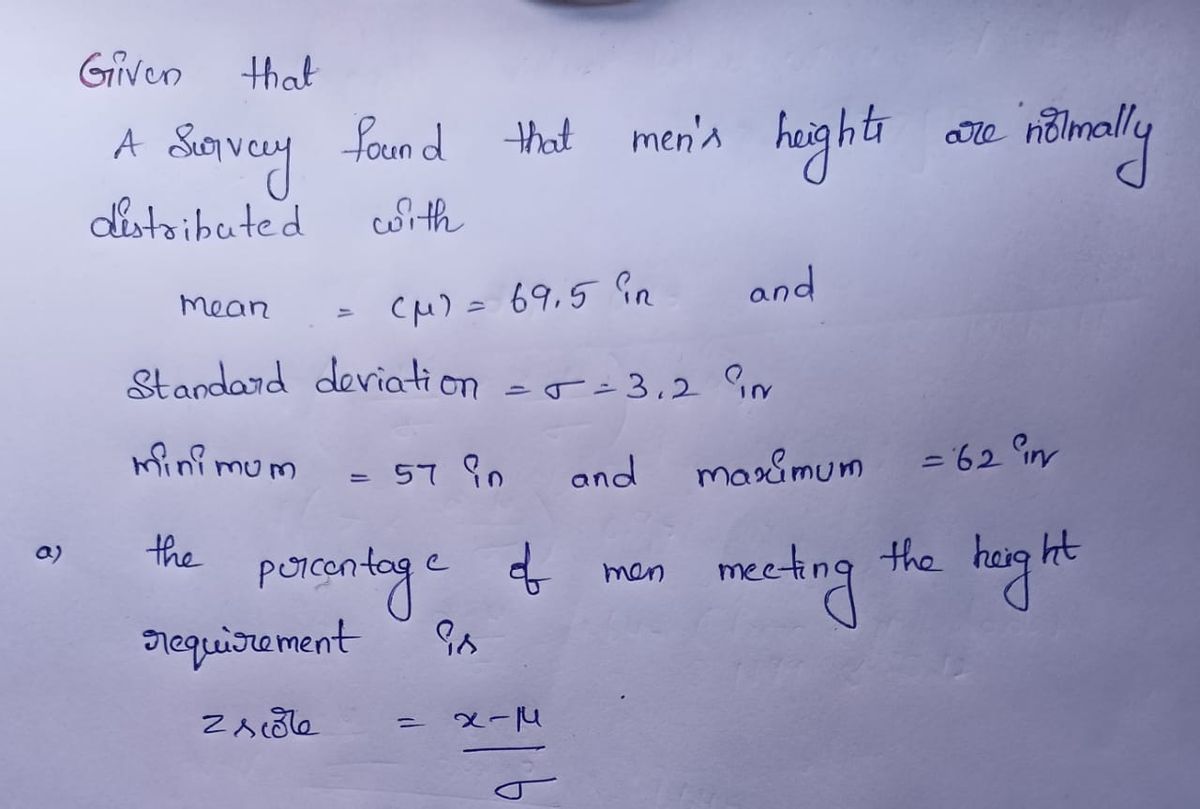 Given that
A Survey found that men's heights are normally
distributed with
mean = (μ) = 69.5 in and
Standard deviation = σ = 3.2 in
minimum = 57 in and maximum = 62 in
a) the percentage of men meeting the height
requirement is
z score = x-μ
σ